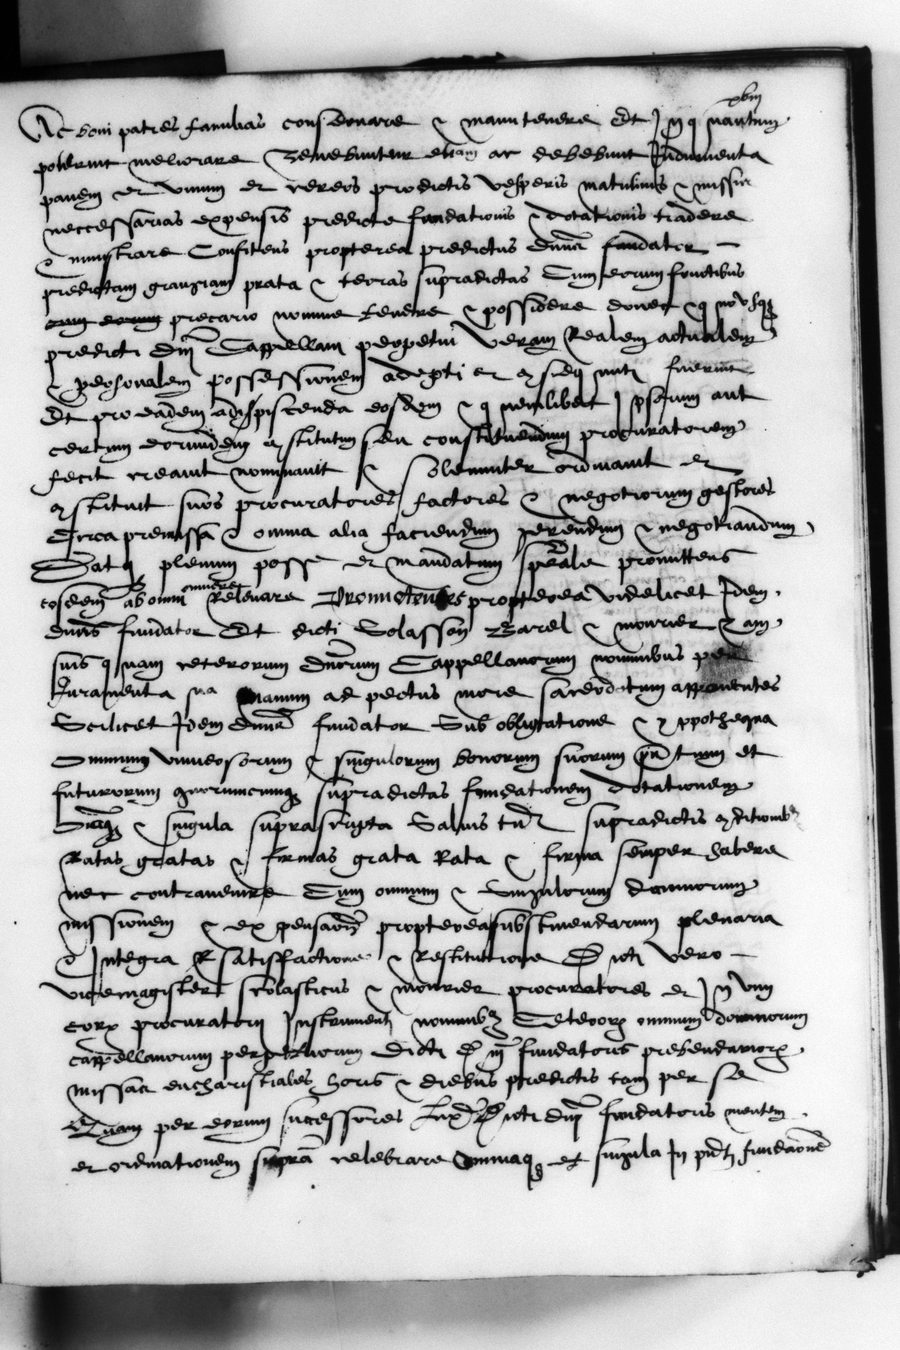 xviij
Ac boni patres familias conservare & manutenere Et In q̃ nantum
poterunt meliorare Tenebuntur etiam ac debebunt Indumenta
panem et vinum et cereos prodictis vesperis matutinis & missis
neccessarias expensis predicte fundationis & dotationis tradere
& ministrare Confitens propterea predictus dnus fundator
predictam grangiam prata & terras supradictas Cum eorum fructibus
cum eorum precario nomine tenere & possidere donec & q
predicti dnj Cappellani perpetui Veram Realem actualem
& personalem possessionem adepti et fuerint
Et pro eadem adipiscenda eosdem & q nemlibet Ipsorum aut
certum eorumdem cstitutum seu constituendum procuratorem
fecit creavit nominavit & solemniter ordinavit et
cstituit suos procuratores factores & negotiorum gestores
Circa premissa & omnia alia faciendum gerendum & negotiandum
Dat q plenum posse et mandatum sperale promittens
eosdem ab omni onere Relevare Promictentes propterea videlicet Idem
dnus fundator Et dicti Solasson Barel & mourier Tam
suis q nam ceterorum dnorum Cappellanorum nominibus per
Juramenta sua manum ad pectus more sacerdotum apponentes
Scilicet Idem dnus fundator Sub obligatione & yppothequa
Omnium universorum & singulorum bonorum suorum pntium et
futurorum quorumcumq supradictas fundationem dotationem
& singula suprascripta Salvis tn supradictis cditionibs
Ratas gratas & firmas grata Rata & firma semper habere
nec contravenire Cum omnium & singulorum damnorum
missionem & expensarum propterea substinendarum plenaria
& Integra Satisfactione & Restitutione Dicti vero
vicemagister scolasticus & mourier procuratores et In vim
eorum procuratorij Instrumenti nominibz Ceteroru omnium dominorum
cappellanorum perpetuorum dicti dnj fundatoris prebendarioru
missas eucharistiales horis & diebus predictis tam per se
Quam per eorum sucessores Juxta dicti dnj fundatoris mentem
et ordinationem supra celebrare omniaq et singula In pndti fundaone